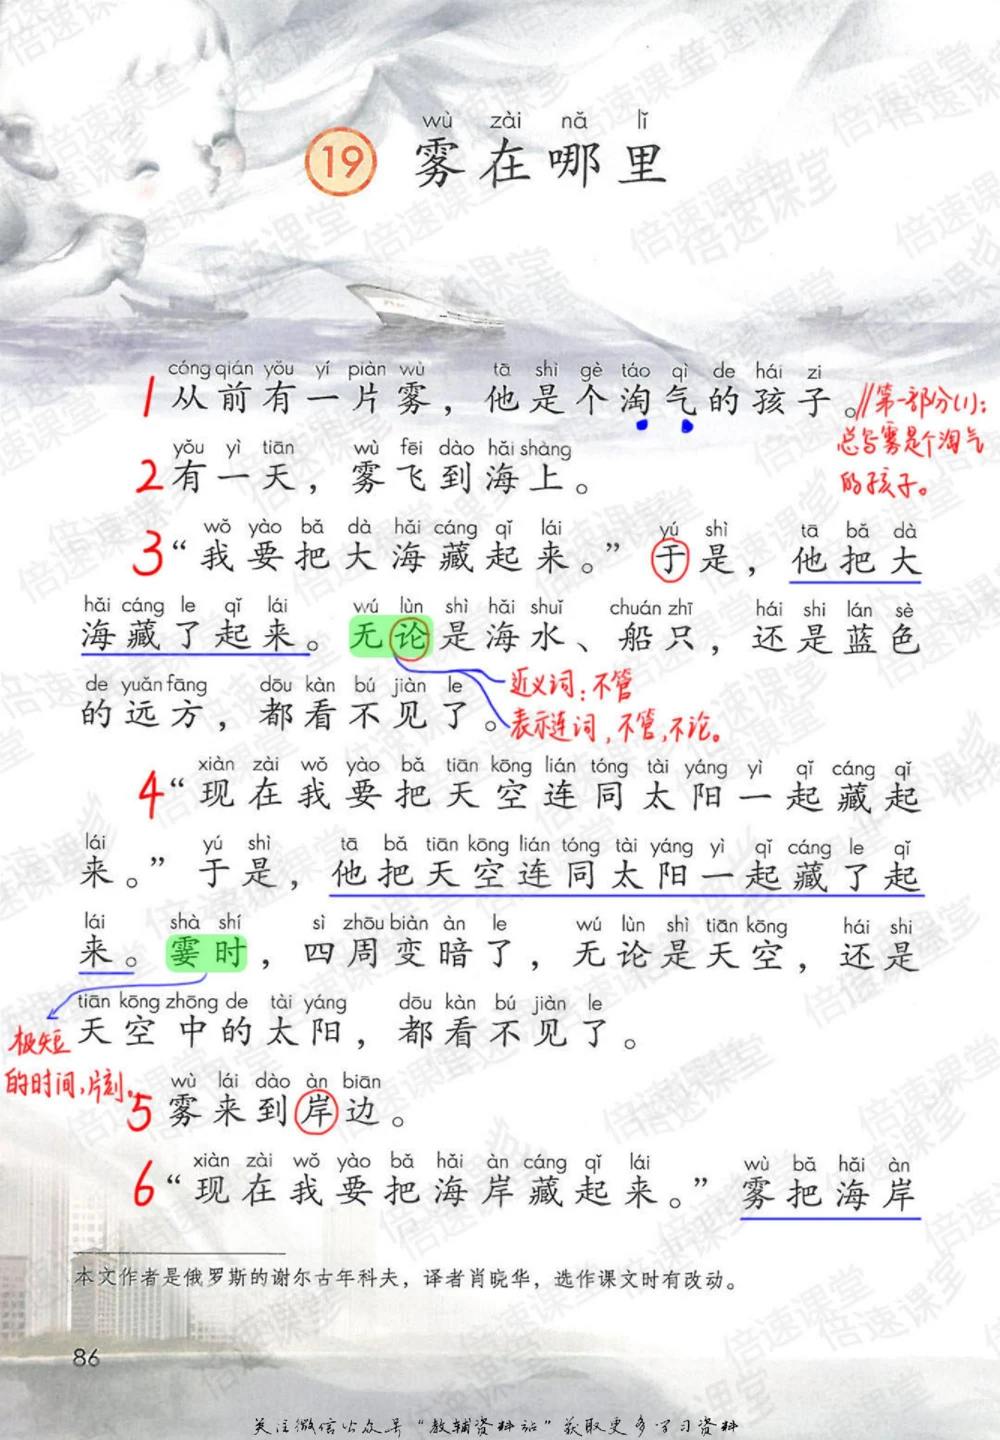 wù zài nǎ lǐ
19 雾在哪里
cóng qián yǒu yí piàn wù tā shì gè táo qì de hái zi
1 从前有一片雾，他是个淘气的孩子。
//第一部分(1)：
总写雾是个淘气
的孩子。
yǒu yì tiān wù fēi dào hǎi shàng
2 有一天，雾飞到海上。
wǒ yào bǎ dà hǎi cáng qǐ lái yú shì tā bǎ dà
3 “我要把大海藏起来。”于是，他把大
hǎi cáng le qǐ lái wú lùn shì hǎi shuǐ chuán zhī hái shi lán sè
海藏了起来。无论是海水、船只，还是蓝色
de yuǎn fāng dōu kàn bú jiàn le
的远方，都看不见了。
近义词：不管
表示连词，不管，不论。
xiàn zài wǒ yào bǎ tiān kōng lián tóng tài yáng yì qǐ cáng qǐ
4 “现在我要把天空连同太阳一起藏起
lái yú shì tā bǎ tiān kōng lián tóng tài yáng yì qǐ cáng le qǐ
来。”于是，他把天空连同太阳一起藏了起
lái shà shí sì zhōu biàn àn le wú lùn shì tiān kōng hái shi
来。霎时，四周变暗了，无论是天空，还是
tiān kōng zhōng de tài yáng dōu kàn bú jiàn le
天空中的太阳，都看不见了。
极短
的时间，片刻。
wù lái dào àn biān
5 雾来到岸边。
xiàn zài wǒ yào bǎ hǎi àn cáng qǐ lái wù bǎ hǎi àn
6 “现在我要把海岸藏起来。”雾把海岸
本文作者是俄罗斯的谢尔古年科夫，译者肖晓华，选作课文时有改动。
86
关注微信公众号“教辅资料站”获取更多学习资料
倍速课堂